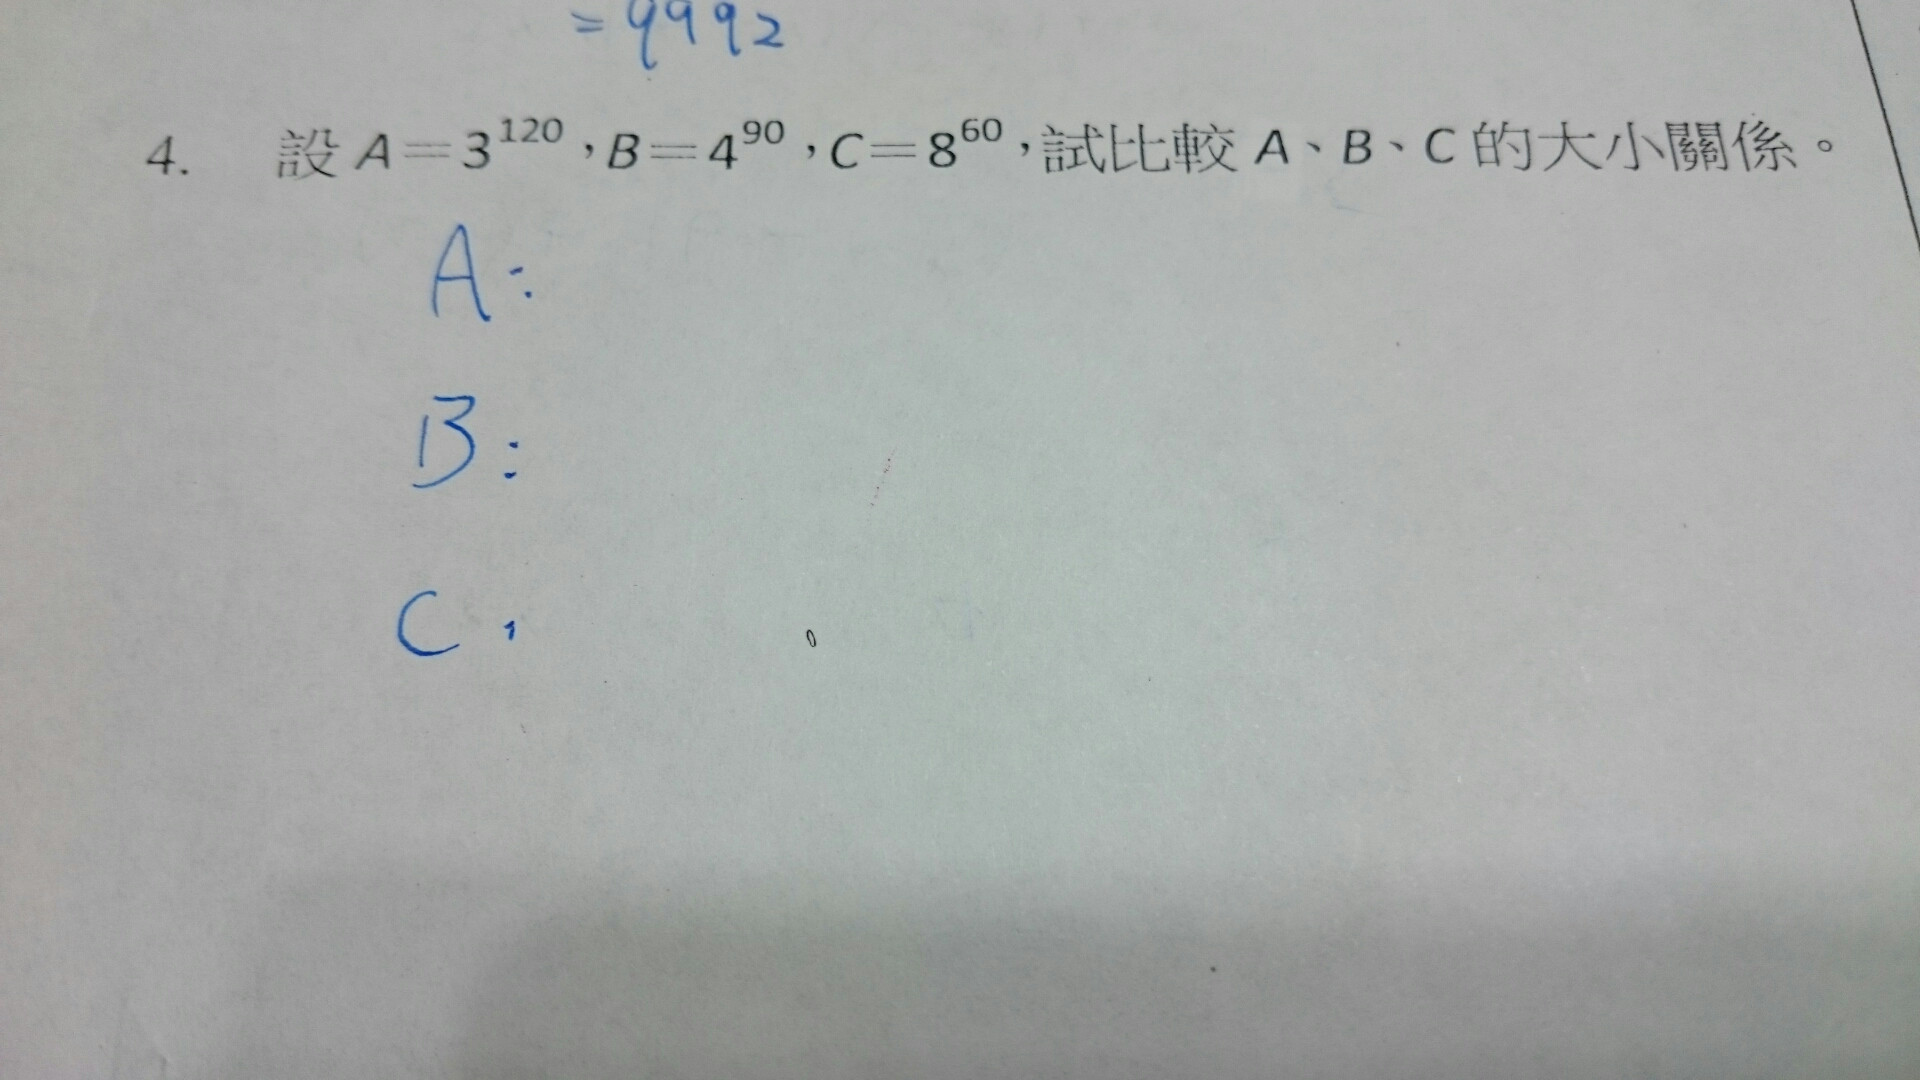 =9992
4. 設 A=3¹²⁰，B=4⁹⁰，C=8⁶⁰，試比較 A、B、C 的大小關係。
A:
B:
C: